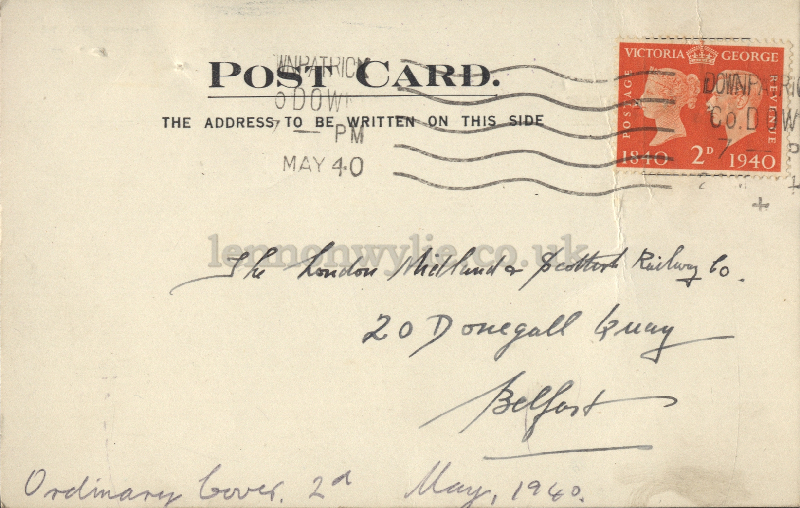 POST CARD.
THE ADDRESS TO BE WRITTEN ON THIS SIDE
WNPATRICK
o DOW
7 — PM
MAY 40
VICTORIA GEORGE
POSTAGE
REVENUE
1840 2D 1940
DOWNPATRIC
Co. DOW
7 — P
lennonwylie.co.uk
The London Midland & Scottish Railway Co.
20 Donegall Quay
Belfast
Ordinary Cover. 2d May, 1940.